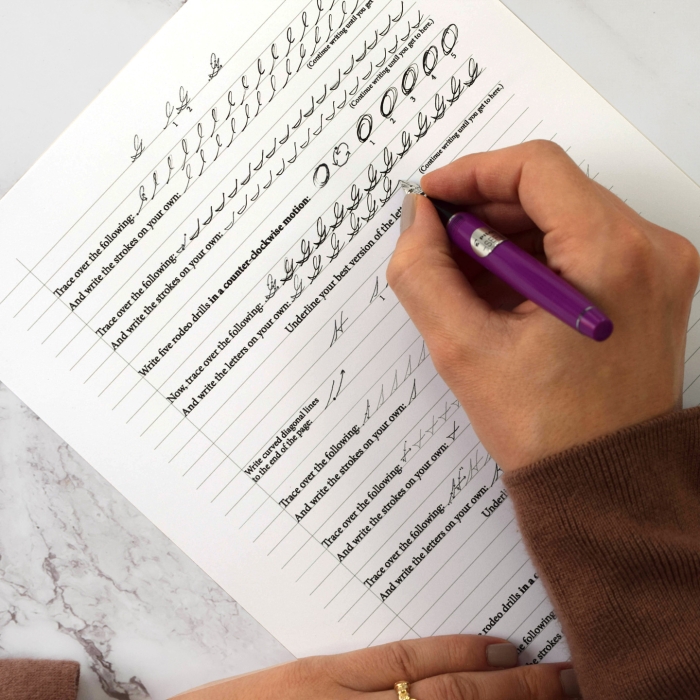 G
1 2
Trace over the following:
And write the strokes on your own:
(Continue writing until you get to here.)
Trace over the following:
And write the strokes on your own:
(Continue writing until you get to here.)
Write five rodeo drills in a counter-clockwise motion:
1 2 3 4 5
Now, trace over the following: G G G G G G G G G G
And write the letters on your own: G G G G G
(Continue writing until you get to here.)
Underline your best version of the
H
1
Write curved diagonal lines
to the end of the page.
Trace over the following:
And write the strokes on your own:
Trace over the following:
And write the strokes on your own:
Trace over the following:
And write the letters on your own:
rodeo drills in a
following:
your own: